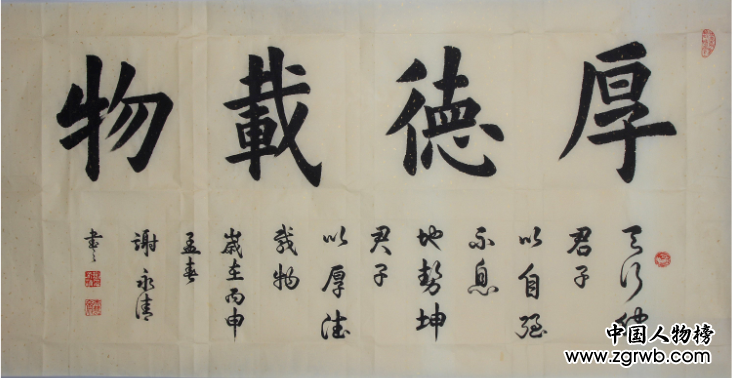 厚德載物
天行健
君子
以自強
不息
地勢坤
君子
以厚德
載物
歲在丙申
孟春
謝永清
書
中国人物榜
www.zgrwb.com